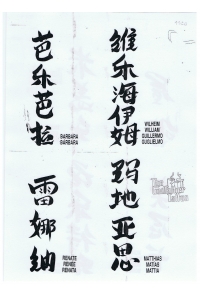 芭乐芭拉
BARBARA
BARBARA
维乐海伊姆
WILHEIM
WILLIAM
GUILLERMO
GUGLIELMO
雷娜纳
RENATE
RENÉE
RENATA
玛地亚思
MATTHIAS
MATÍAS
MATTIA
The